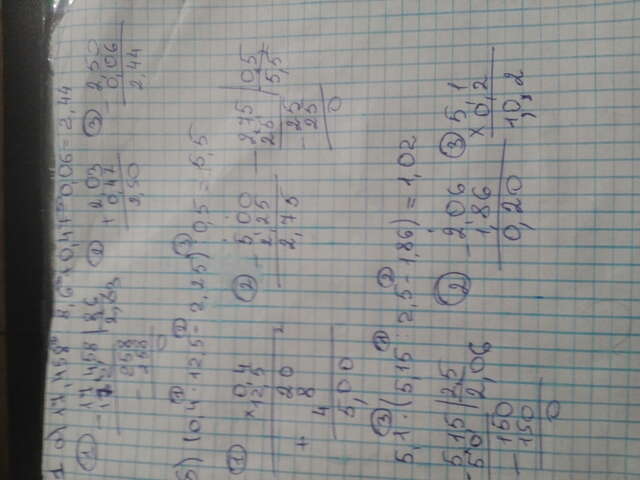 1 а) 17,458 : 8,6 + 0,47 - 0,06 = 2,44
① 17,458 | 86
2,03
258
258
0
② 2,03
+ 0,47
2,50
③ 2,50
0,06
2,44
б) (0,4 · 12,5 - 2,25) : 0,5 = 5,5
① 0,4
× 12,5
20
+ 8
4
5,00
② 5,00
- 2,25
2,75
- 2,75 | 0,5
25 | 5,5
- 25
25
0
5,1 · (5,15 : 2,5 - 1,86) = 1,02
- 5,15 | 2,5
50 | 2,06
- 150
150
0
② - 2,06
1,86
0,20
③ 5,1
× 0,2
10,2